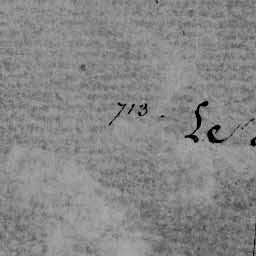 713. Le